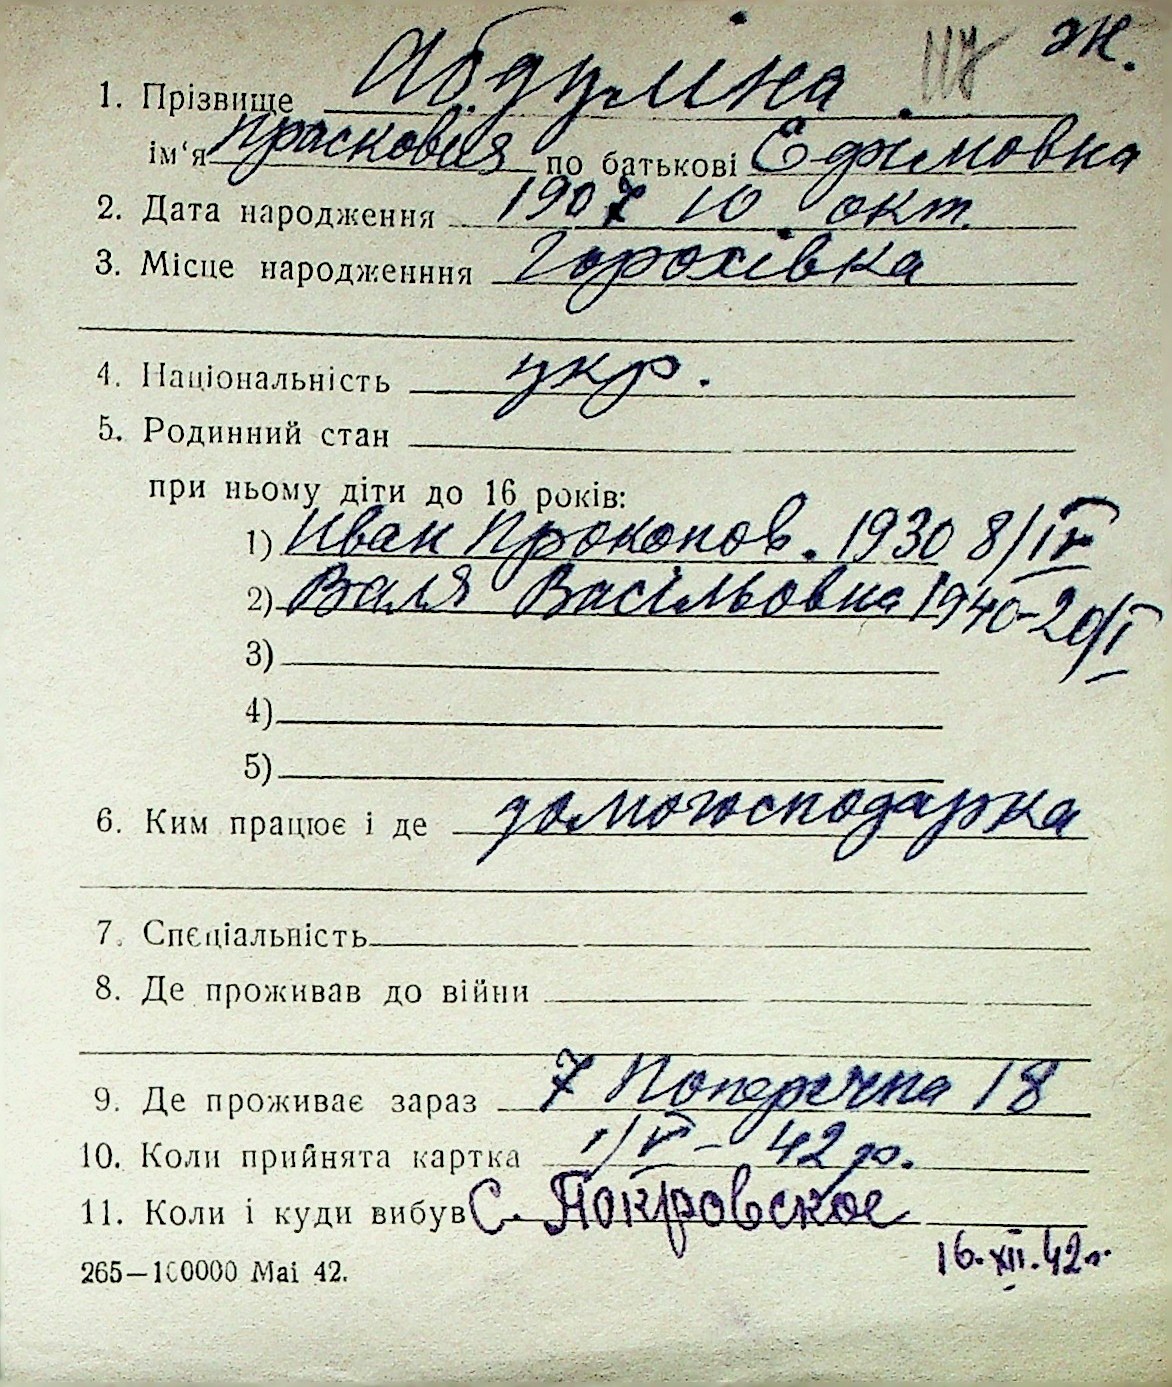 ж.
1. Прізвище Абдуліна
ім'я Прасковия по батькові Ефимовна
2. Дата народження 1907 10 окт.
3. Місце народженння Горохівка
4. Національність укр.
5. Родинний стан
при ньому діти до 16 років:
1) Иван Прокопов. 1930 8/IV
2) Валя Васільовна 1940-20/I
3)
4)
5)
6. Ким працює і де домогосподарка
7. Спеціальність
8. Де проживав до війни
9. Де проживає зараз 7 Поперечна 18
10. Коли прийнята картка 1/V - 42 р.
11. Коли і куди вибув С. Покровское
16.XII.42г.
265—100000 Mai 42.